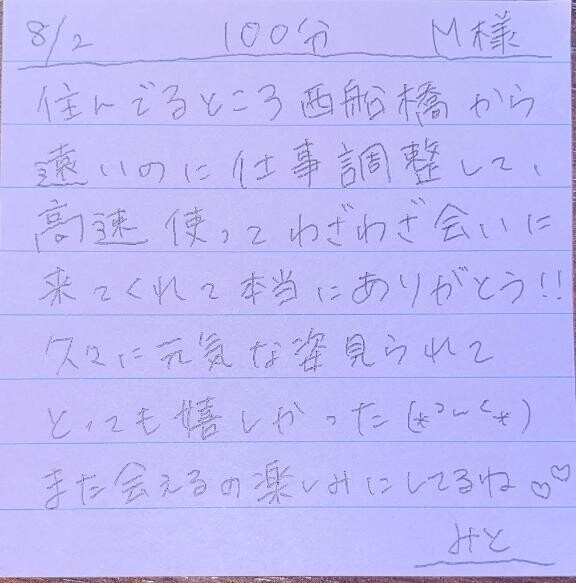 8/2 100分 M様
住んでるところ西船橋から
遠いのに仕事調整して、
高速使ってわざわざ会いに
来てくれて本当にありがとう!!
久々に元気な姿見られて
とっても嬉しかった(*˘︶˘*)
また会えるの楽しみにしてるね♡♡
みと